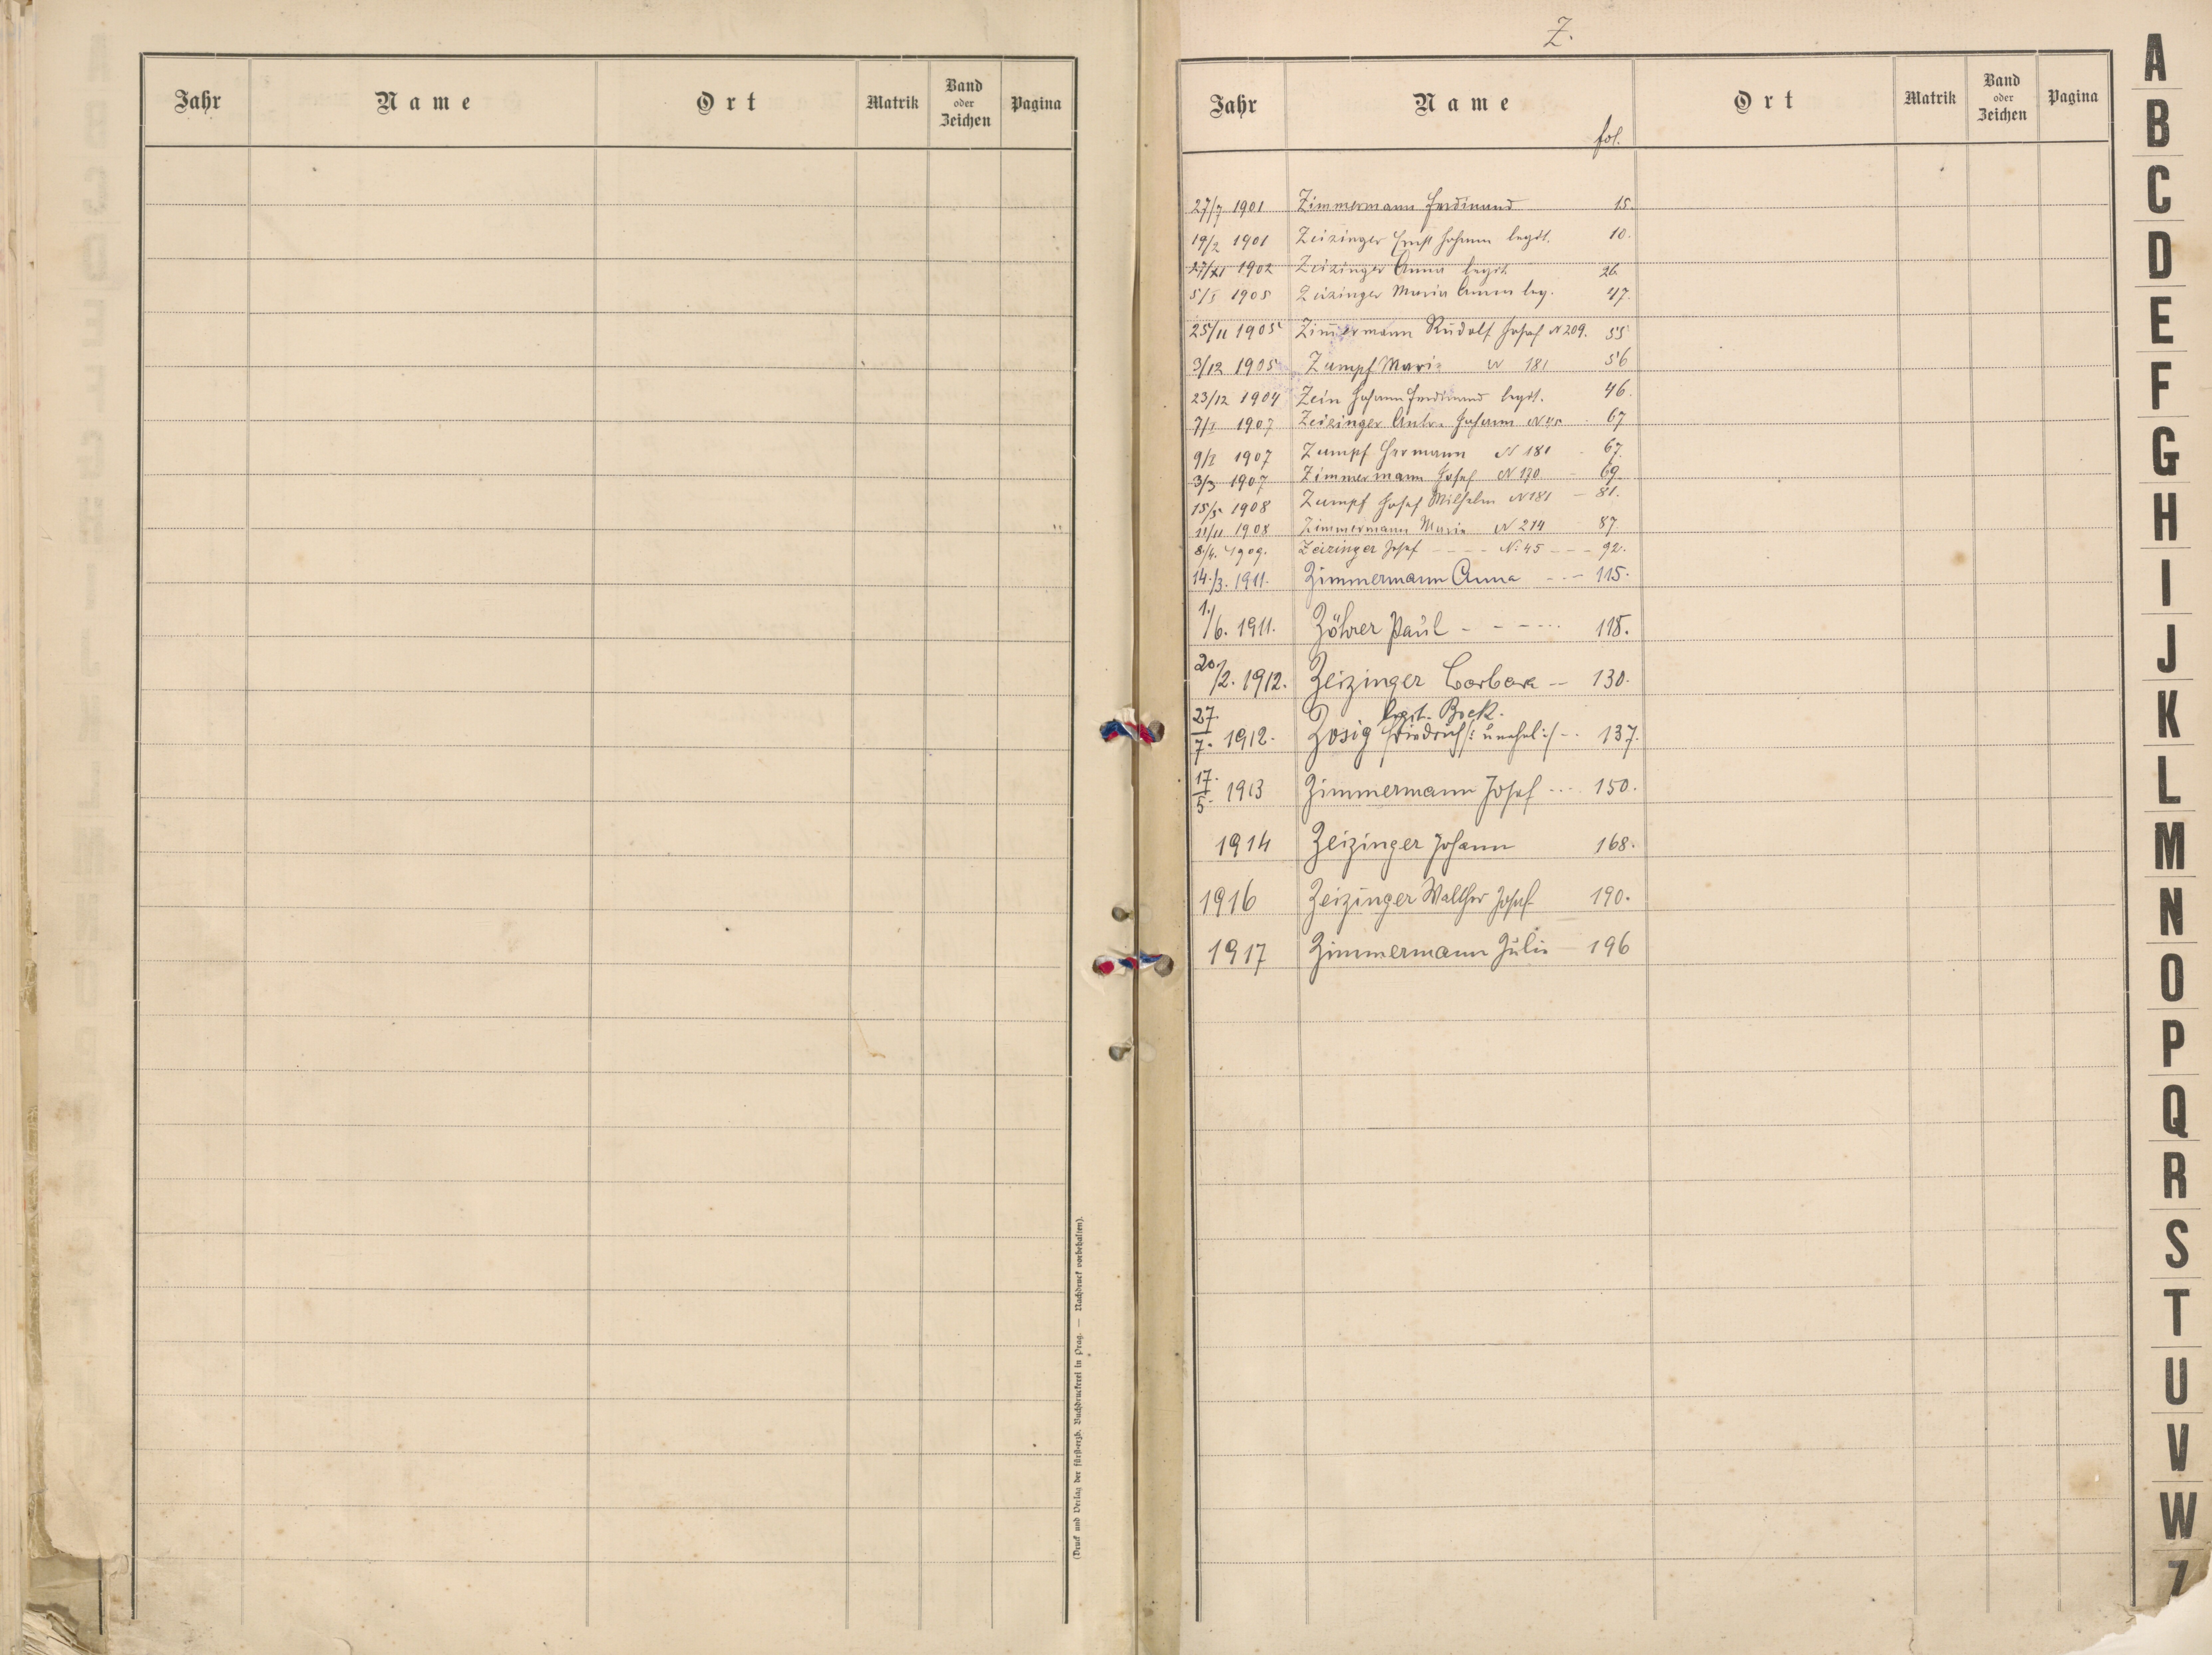 Jahr Name Ort Matrik Band oder Zeichen Pagina
(Druck und Verlag der fürsterzb. Buchdruckerei in Prag. — Nachdruck vorbehalten).
Z.
Jahr Name fol. Ort Matrik Band oder Zeichen Pagina
27/7 1901 Zimmermann Ferdinand 15.
19/2 1901 Zeizinger Ernst Johann legit. 10.
27/XI 1902 Zeizinger Anna legit 26
5/I 1905 Zeizinger Maria Anna leg. 47.
25/11 1905 Zimmermann Rudolf Josef N 209. 55
3/12 1905 Zumpf Marie N 181 56
23/12 1904 Zein Johann Ferdinand legit. 46.
7/I 1907 Zeizinger Johann N 45 - 67
9/I 1907 Zumpf Hermann N 181 - 67.
3/3 1907 Zimmermann Josef N 170 - 69.
15/5 1908 Zumpf Josef Wilhelm N 181 - 81.
11/11 1908 Zimmermann Marie N 214 87.
8./4. 1909. Zeizinger Josef - - - - N: 45 - - - 92.
14./3. 1911. Zimmermann Anna - - - 115.
1./6. 1911. Zöhrer Paul - - - - ... 118.
20/2. 1912. Zeizinger Barbara -- 130.
legit. Bock.
27./7. 1912. Zosig Friedrich /: unehel :/ - . 137.
17./5. 1913 Zimmermann Josef ... 150.
1914 Zeizinger Johann 168.
1916 Zeizinger Walther Josef 190.
1917 Zimmermann Julie - 196
A
B
C
D
E
F
G
H
I
J
K
L
M
N
O
P
Q
R
S
T
U
V
W
Z